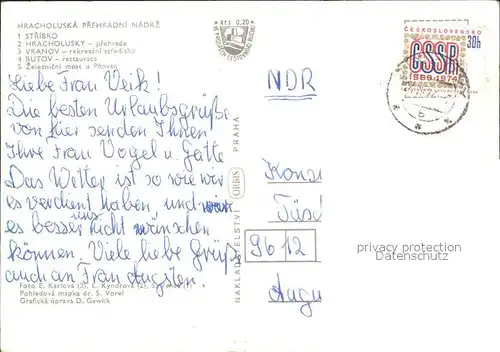 HRACHOLUSKÁ PŘEHRADNÍ NÁDRŽ
1 STŘÍBRO
2 HRACHOLUSKY – přehrada
3 VRANOV – rekreační středisko
4 BUTOV – restaurace
5 Železniční most u Pňovan
Kčs 0,20
Liebe Frau Veik!
Die besten Urlaubsgrüße
von hier senden Ihnen
Ihre Frau Vogel u. Gatte
Das Wetter ist so wie wir
es verdient haben und
es besser uns nicht wünschen
können. Viele liebe Grüße
auch an Frau Augsten.
Foto E. Karlová (2), L. Kyndrová (2),
Pohledová mapka dr. S. Vorel
Grafická úprava D. Gawlik
NAKLADATELSTVÍ ORBIS PRAHA
ČESKOSLOVENSKO
30h
ČSSR
1969 1974
NDR
9612
privacy protection
Datenschutz